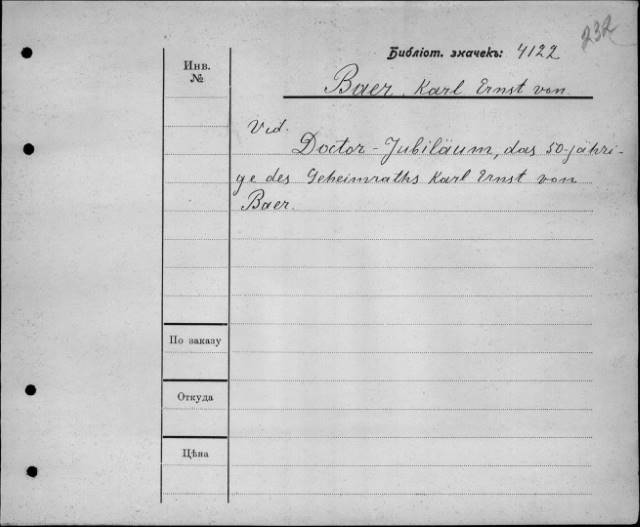 232
Библіот. значекъ: 4122
Инв.
№
Baer, Karl Ernst von
Vid.
Doctor-Jubiläum, das 50-jähri-
ge des Geheimraths Karl Ernst von
Baer.
По заказу
Откуда
Цѣна